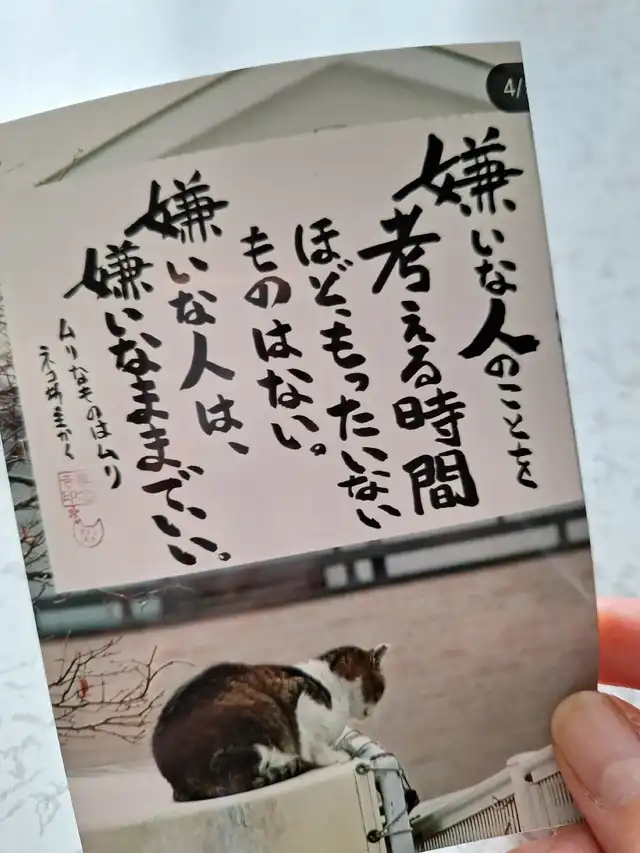 4/
嫌いな人のことを
考える時間
ほど、もったいない
ものはない。
嫌いな人は、
嫌いなままでいい。
ムリなものはムリ